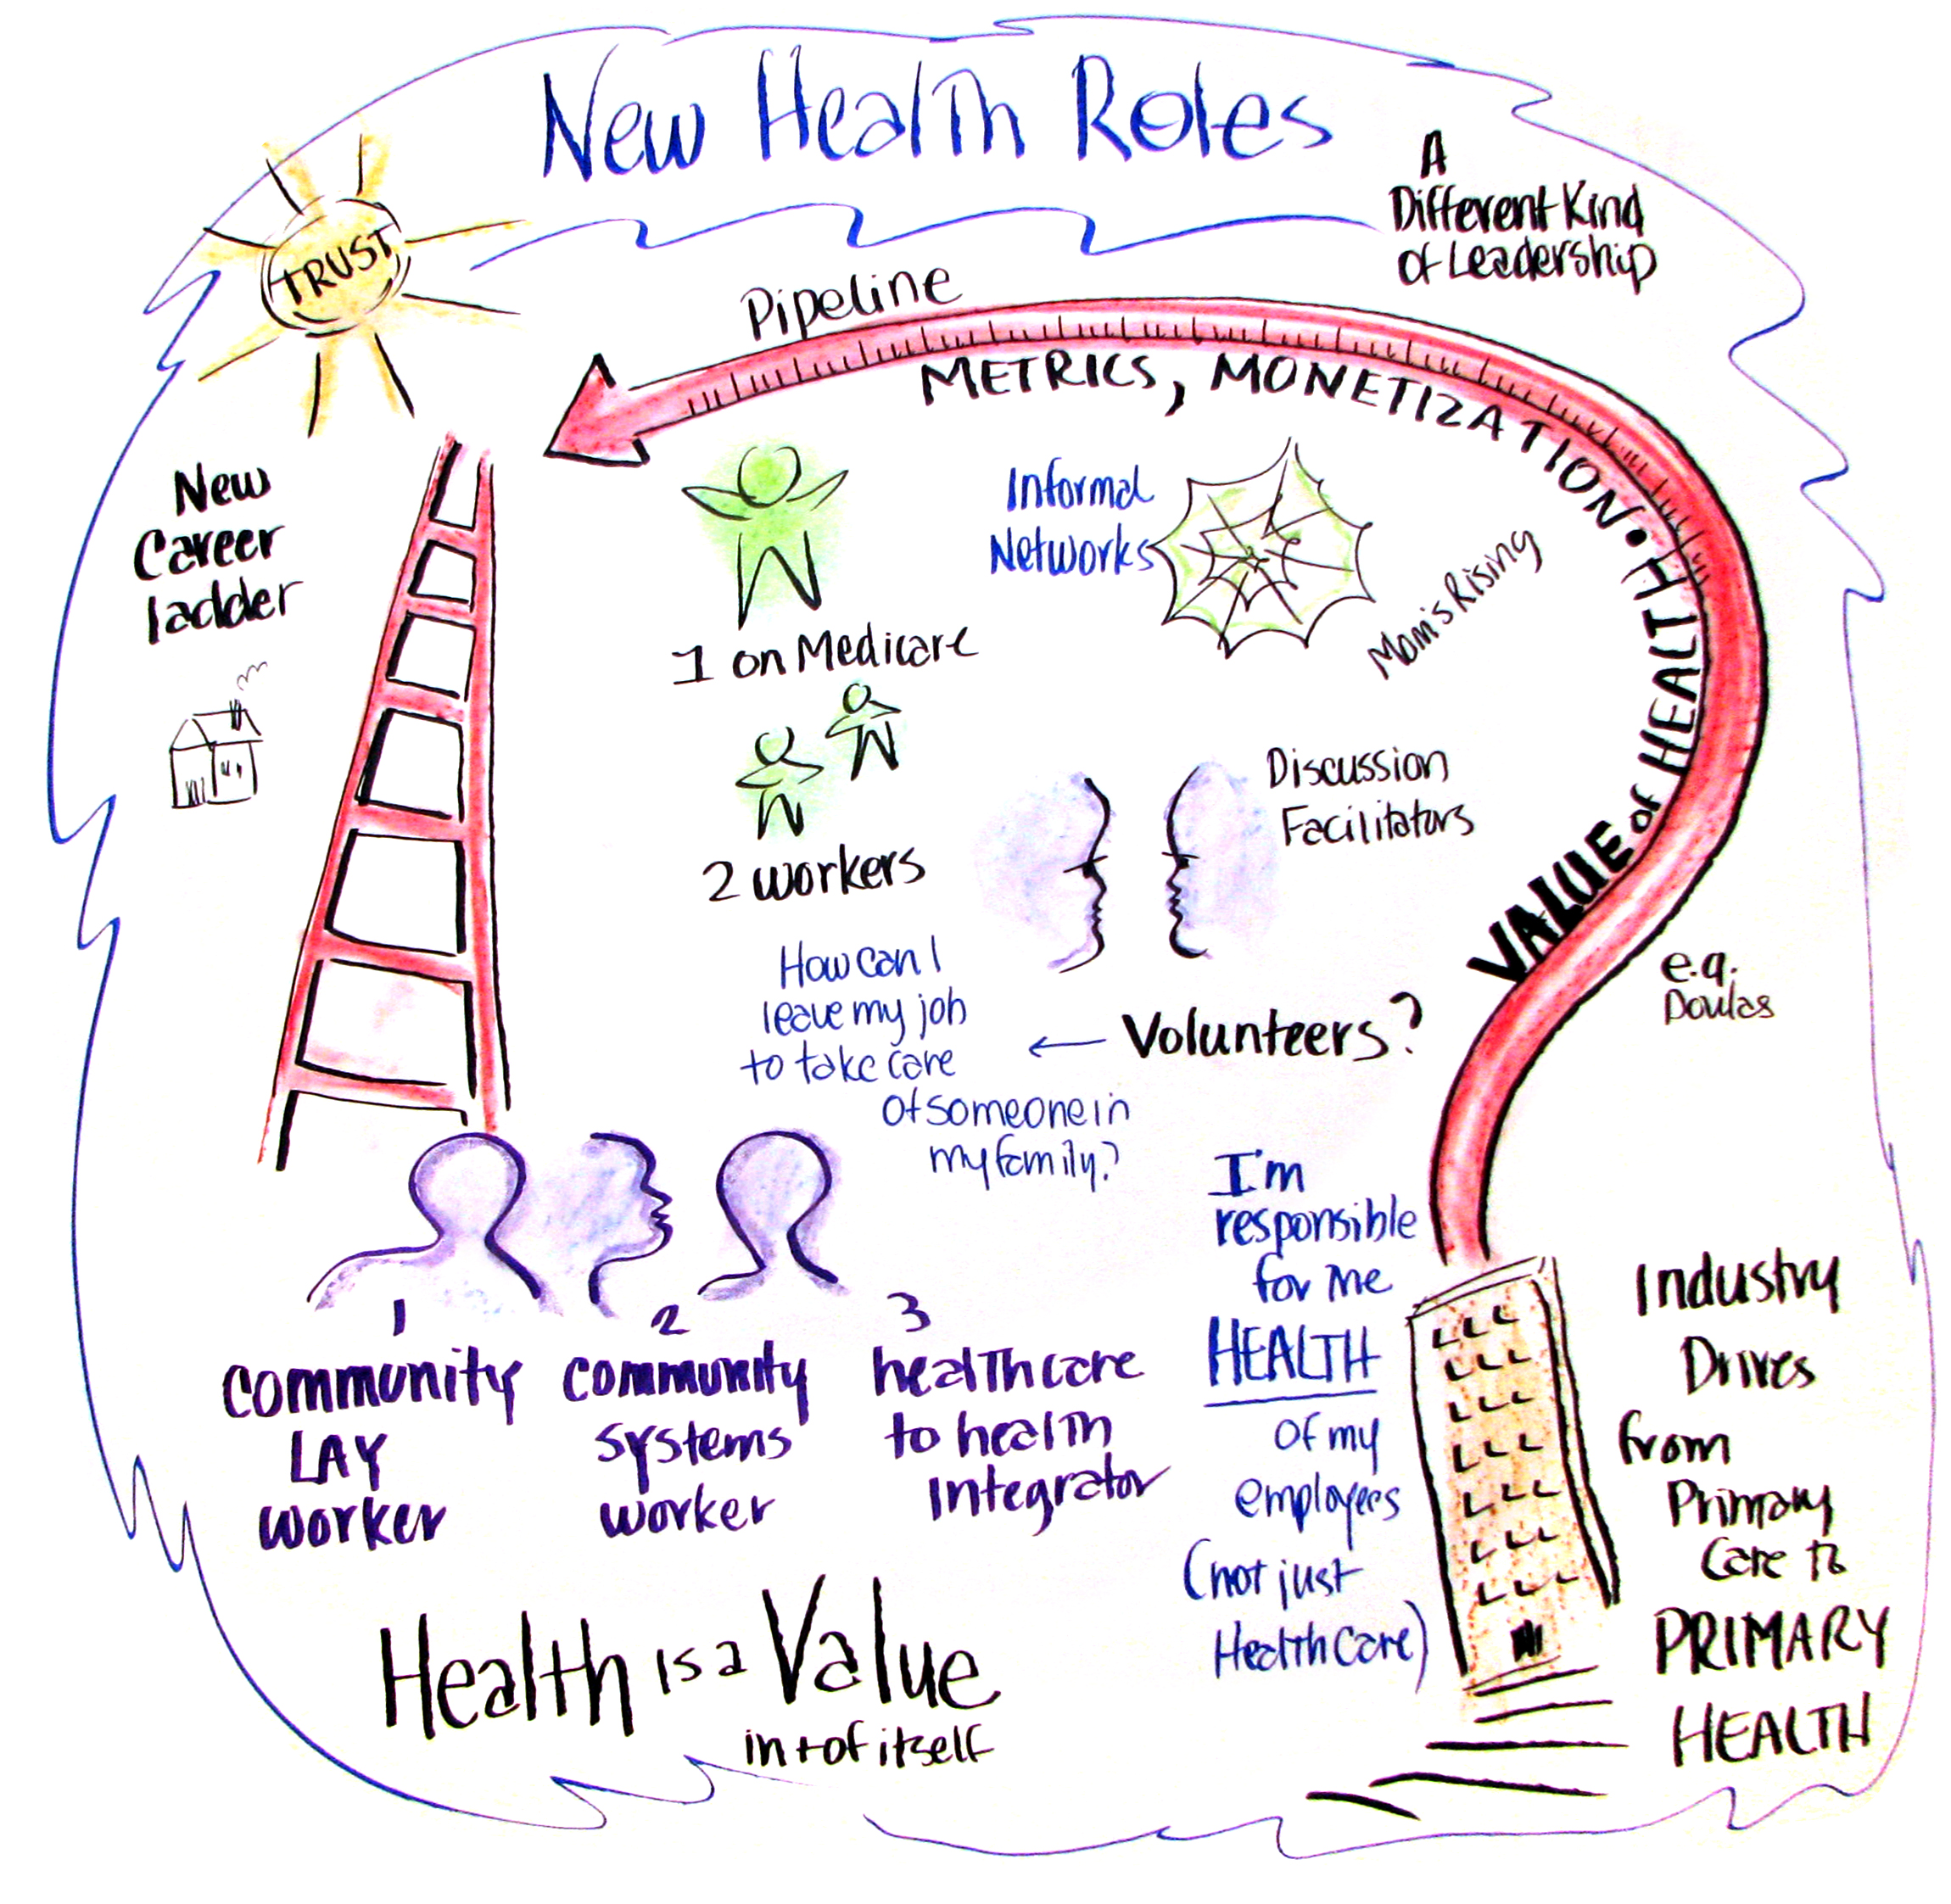 New Health Roles
A
Different Kind
of Leadership
TRUST
Pipeline
METRICS, MONETIZATION • HEALTH
VALUE of
New
Career
ladder
1 on Medicare
2 workers
Informal
Networks
Mom's Rising
Discussion
Facilitators
e.g.
Doulas
Volunteers?
How can I
leave my job
to take care
of someone in
my family?
1
community
LAY
worker
2
community
systems
worker
3
healthcare
to health
Integrator
I'm
responsible
for the
HEALTH
of my
employees
(not just
HealthCare)
Industry
Drives
from
Primary
Care to
PRIMARY
HEALTH
Health is a Value
in + of itself